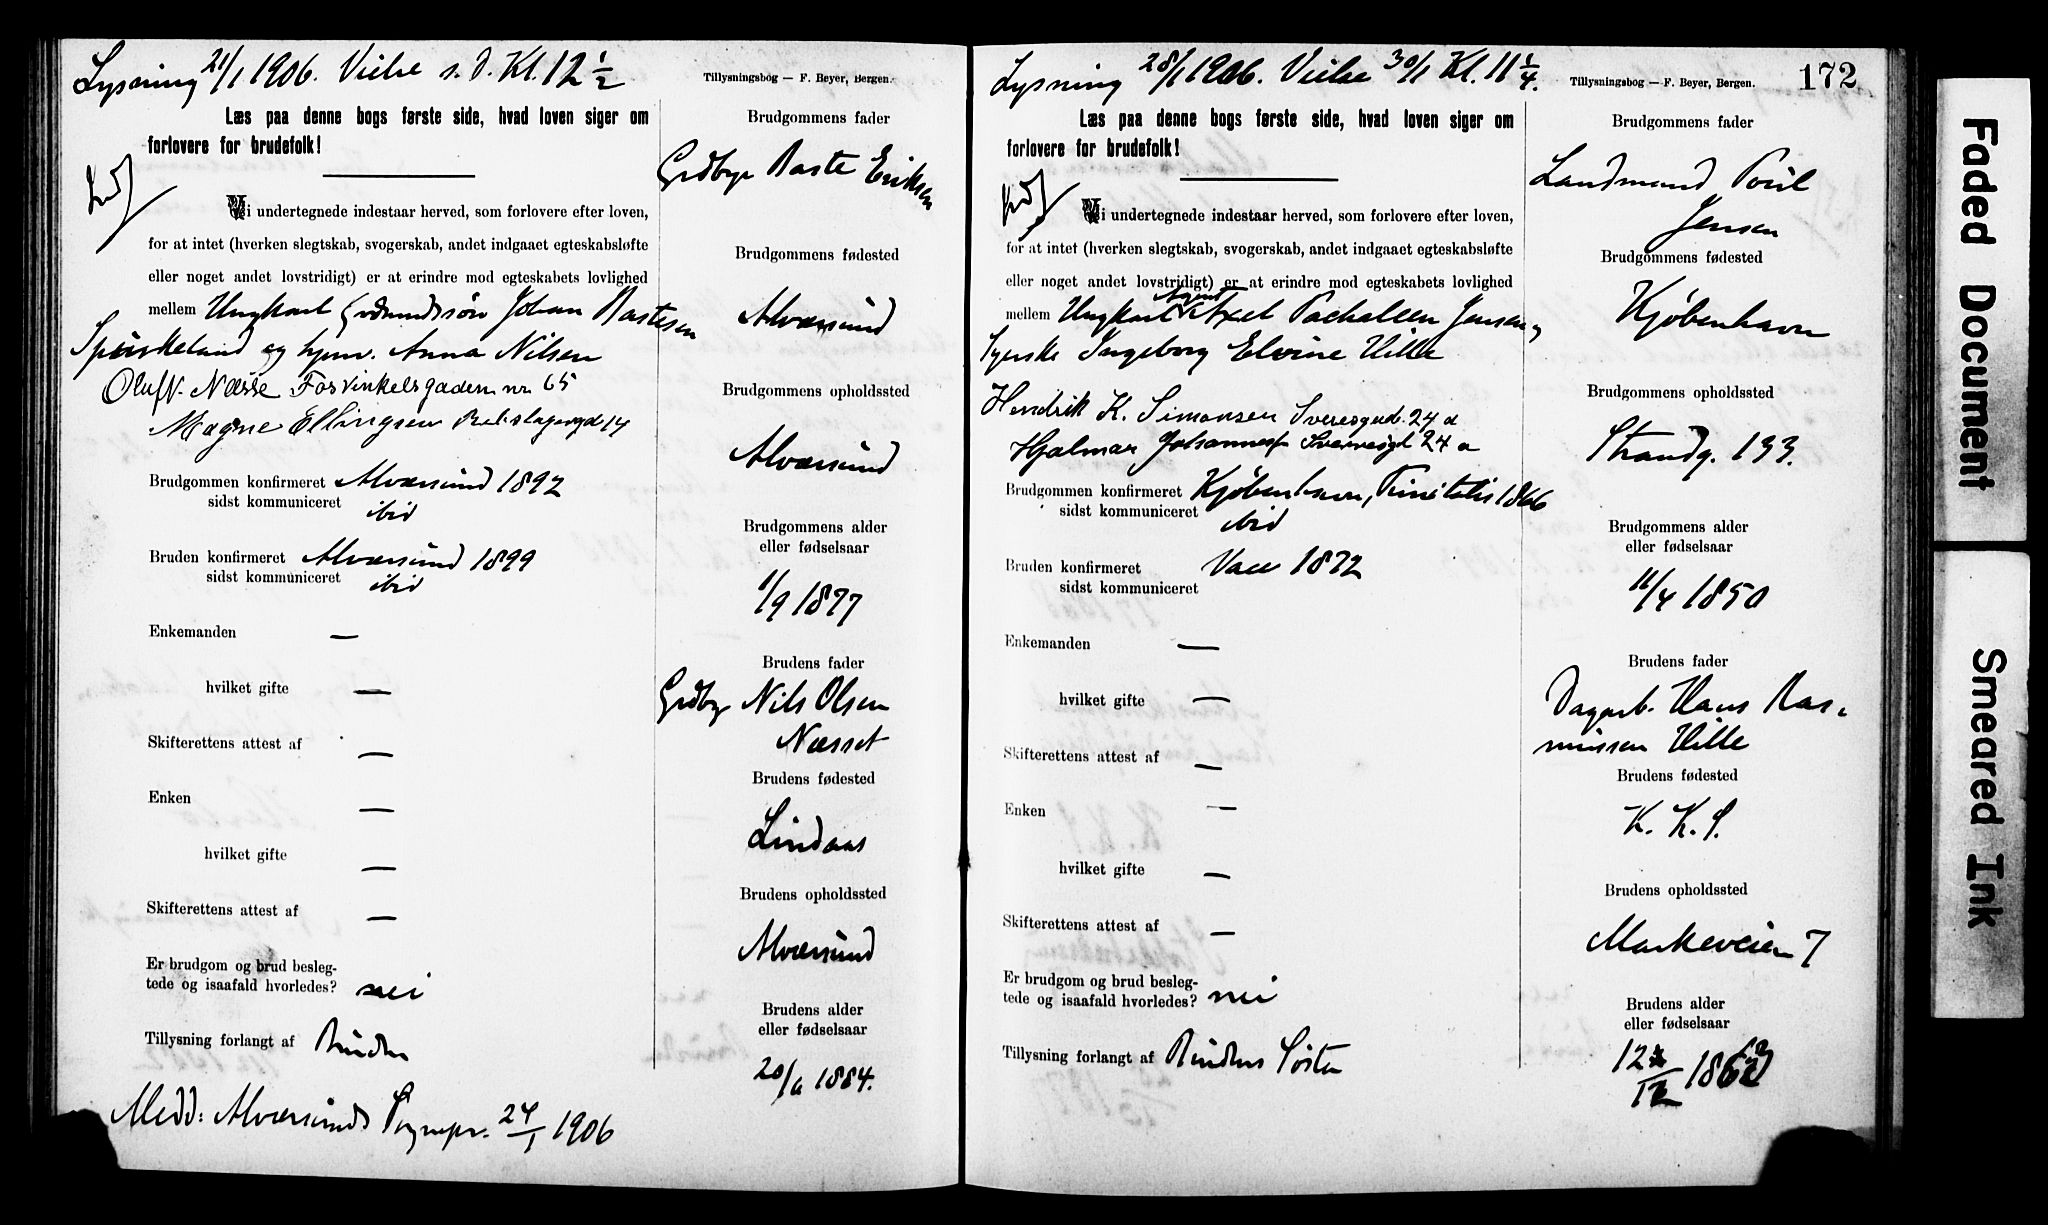 Lysning 21/1 1906. Vielse s. d. Kl. 12 1/2
Tillysningsbog — F. Beyer, Bergen.
Læs paa denne bogs første side, hvad loven siger om
forlovere for brudefolk!
Vi undertegnede indestaar herved, som forlovere efter loven,
for at intet (hverken slegtskab, svogerskab, andet indgaaet egteskabsløfte
eller noget andet lovstridigt) er at erindre mod egteskabets lovlighed
mellem Ungkarl Grdmandssøn Johan Rastesen
Spirkeland og hpmr. Anna Nilsen
Oluf N. Næsse Fosvinkelsgaden nr 65
Magne Ellingsen Rebslagergd 14
Brudgommen konfirmeret Alversund 1892
sidst kommuniceret ibid
Bruden konfirmeret Alversund 1899
sidst kommuniceret ibid
Enkemanden —
hvilket gifte —
Skifterettens attest af —
Enken —
hvilket gifte —
Skifterettens attest af —
Er brudgom og brud besleg-
tede og isaafald hvorledes? nei
Tillysning forlangt af Bruden
Medd: Alversunds Sognepr. 24/1 1906
Brudgommens fader
Grdbr Raste Eriksen
Brudgommens fødested
Alversund
Brudgommens opholdssted
Alversund
Brudgommens alder
eller fødselsaar
11/9 1877
Brudens fader
Grdbr Nils Olsen
Næsset
Brudens fødested
Lindaas
Brudens opholdssted
Alversund
Brudens alder
eller fødselsaar
20/6 1884.
Lysning 28/1 1906. Vielse 30/1 Kl. 11 1/4.
Tillysningsbog — F. Beyer, Bergen.
172
Læs paa denne bogs første side, hvad loven siger om
forlovere for brudefolk!
Vi undertegnede indestaar herved, som forlovere efter loven,
for at intet (hverken slegtskab, svogerskab, andet indgaaet egteskabsløfte
eller noget andet lovstridigt) er at erindre mod egteskabets lovlighed
Agent
mellem Ungkarl Axel Pachalsen Jensen og
Syerske Ingeborg Elvine Hille
Hendrik K. Simonsen Sveresgad. 24 a
Hjalmar Johannesen Sverresgt 24 a
Brudgommen konfirmeret Kjøbenhavn, Trinitatis 1866
sidst kommuniceret ibid
Bruden konfirmeret 1872
sidst kommuniceret
Enkemanden —
hvilket gifte —
Skifterettens attest af —
Enken —
hvilket gifte —
Skifterettens attest af —
Er brudgom og brud besleg-
tede og isaafald hvorledes? nei
Tillysning forlangt af Brudens Søster
Brudgommens fader
Landmand Poul
Jensen
Brudgommens fødested
Kjøbenhavn
Brudgommens opholdssted
Strandg. 133.
Brudgommens alder
eller fødselsaar
11/4 1850
Brudens fader
Dagarb. Hans Ras-
mussen Hille
Brudens fødested
K. K. S.
Brudens opholdssted
Markeveien 7
Brudens alder
eller fødselsaar
Faded Document
Smeared Ink